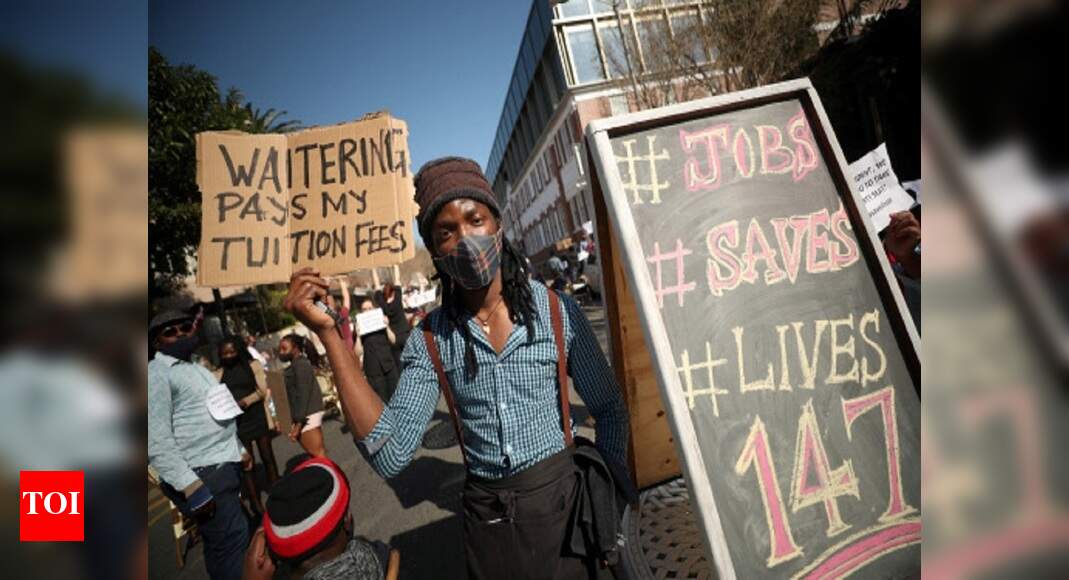 WAITERING
PAYS MY
TUITION FEES
# JOBS
# SAVES
# LIVES
147
TOI